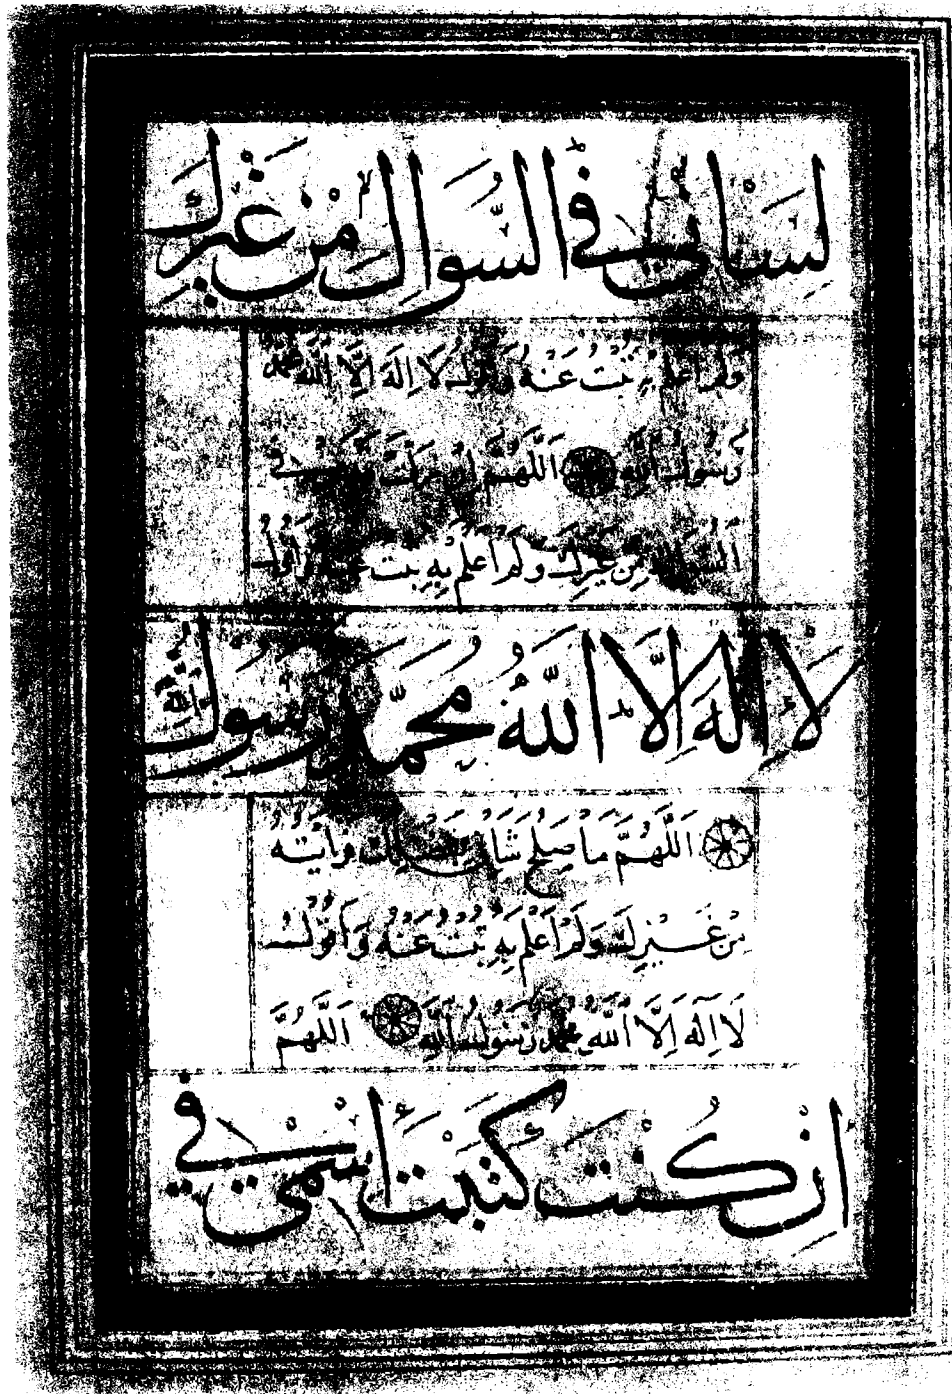 لِسَانِي فِي السُّوَالِ مِنْ غَيْرِكَ
وَلَمْ اَعْلَمْ بِهِ تُبْتُ عَنْهُ وَاَقُولُ لَا اِلَهَ اِلَّا اللَّهُ مُحَمَّدٌ
رَسُولُ اللَّهِ اَللَّهُمَّ اِنْ فِي
السُّوَالِ مِنْ غَيْرِكَ وَلَمْ اَعْلَمْ بِهِ تُبْتُ عَنْهُ وَاَقُولُ
لَا اِلَهَ اِلَّا اللَّهُ مُحَمَّدٌ رَسُولُ اللَّهِ
اَللَّهُمَّ مَا صَلُحَ شَانِي فَرَاَيْتُهُ
مِنْ غَيْرِكَ وَلَمْ اَعْلَمْ بِهِ تُبْتُ عَنْهُ وَاَقُولُ
لَا اِلَهَ اِلَّا اللَّهُ مُحَمَّدٌ رَسُولُ اللَّهِ اَللَّهُمَّ
اِنْ كُنْتَ كَتَبْتَ اِسْمِي فِي